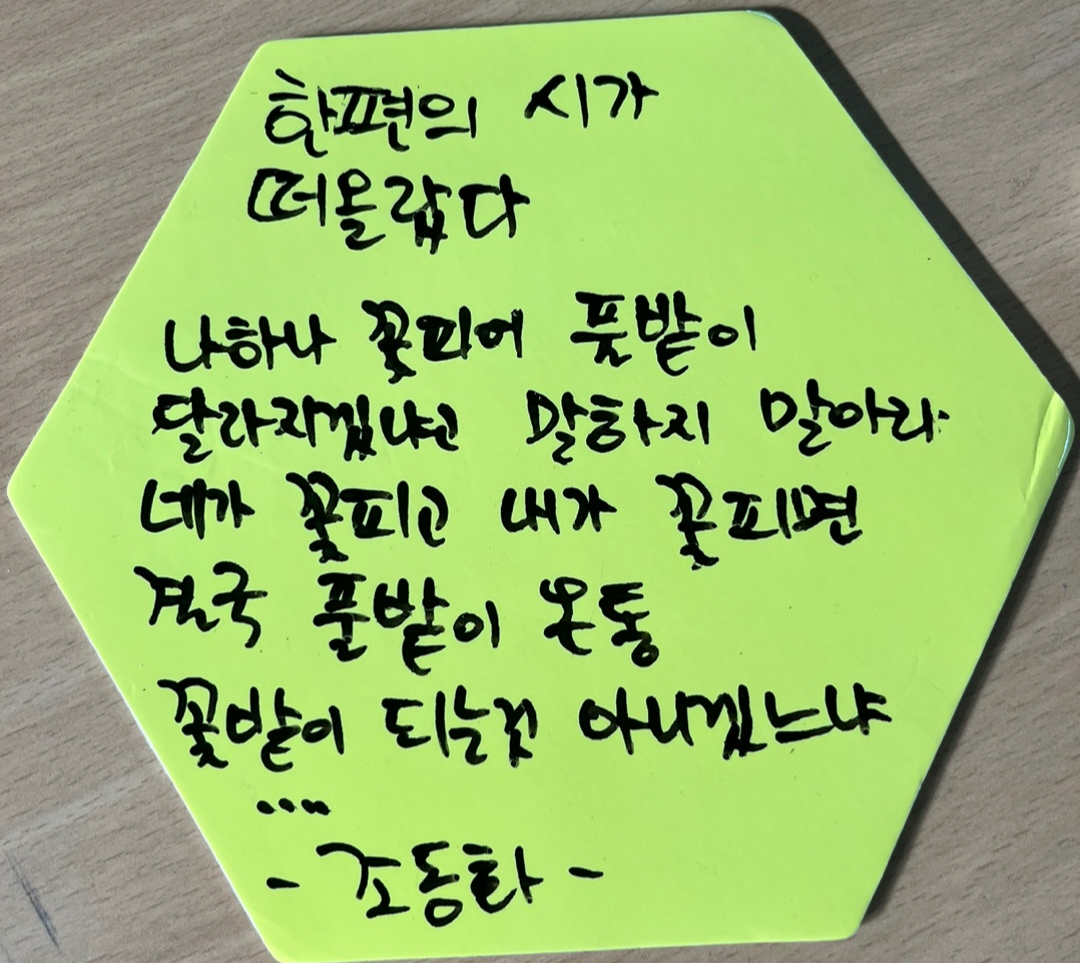 한편의 시가
떠올랐다
나하나 꽃피어 풀밭이
달라지겠냐고 말하지 말아라
네가 꽃피고 내가 꽃피면
결국 풀밭이 온통
꽃밭이 되는것 아니겠느냐
....
- 조동화 -